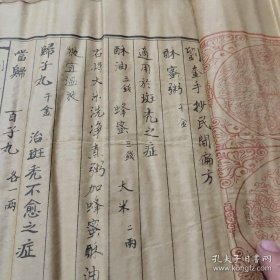 劉奎手抄民間偏方
酥蜜粥 千金
適用於斑禿之症
酥油三錢 蜂蜜三錢 大米二兩
大米洗淨煮粥加蜂蜜酥油
歸子丸 千金
治斑禿不愈之症
當歸 百子丸 各一兩
孔夫子旧书网